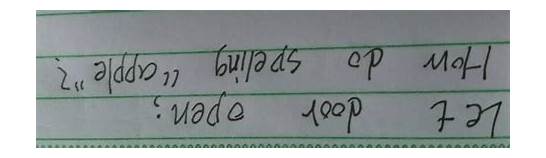 Let door open;
How do speling "apple"?